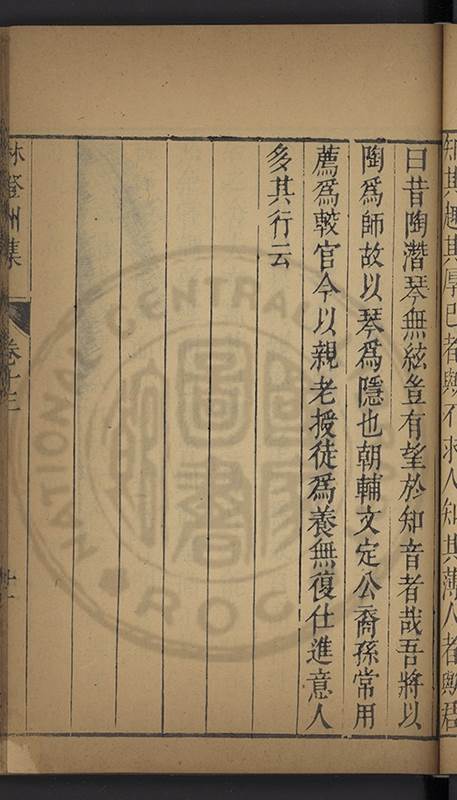 知其趣其厚巴者歟不求人知其薄人者歟君
曰昔陶潛琴無絃豈有望於知音者哉吾將以
陶爲師故以琴爲隱也朝輔文定公裔孫常用
薦爲教官今以親老授徒爲養無復仕進意人
多其行云
林登州集
卷十三
NATIONAL CENTRAL
圖書